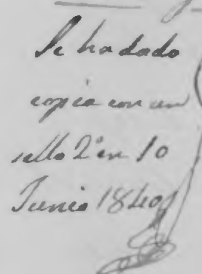 Se ha dado
copia con un
sello 2º en 10
Junio 1840